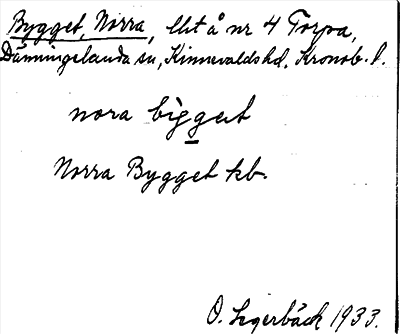 Bygget, Norra, lht å nr 4 Torpa,
Dänningelanda sn, Kinnevaldshd, Kronob. l.
nora bìggat
Norra Bygget kb.
O. Segerbäck 1933.